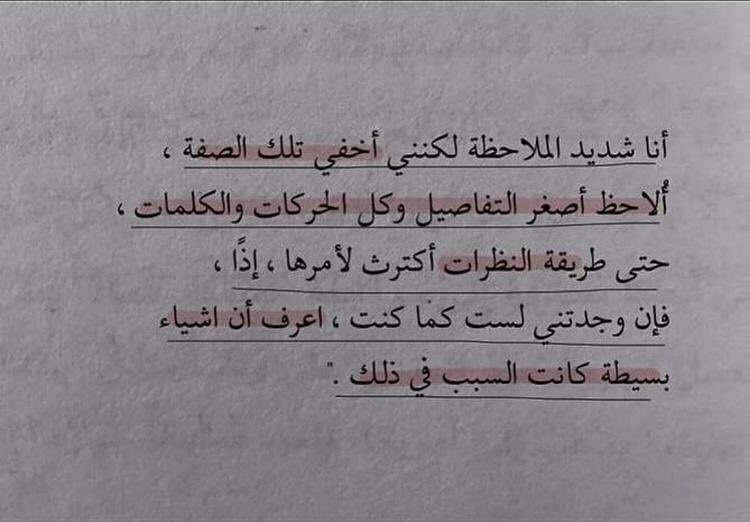 أنا شديد الملاحظة لكنني أخفي تلك الصفة ،
أُلاحظ أصغر التفاصيل وكل الحركات والكلمات ،
حتى طريقة النظرات أكترث لأمرها ، إذًا ،
فإن وجدتني لست كما كنت ، اعرف أن اشياء
بسيطة كانت السبب في ذلك ."